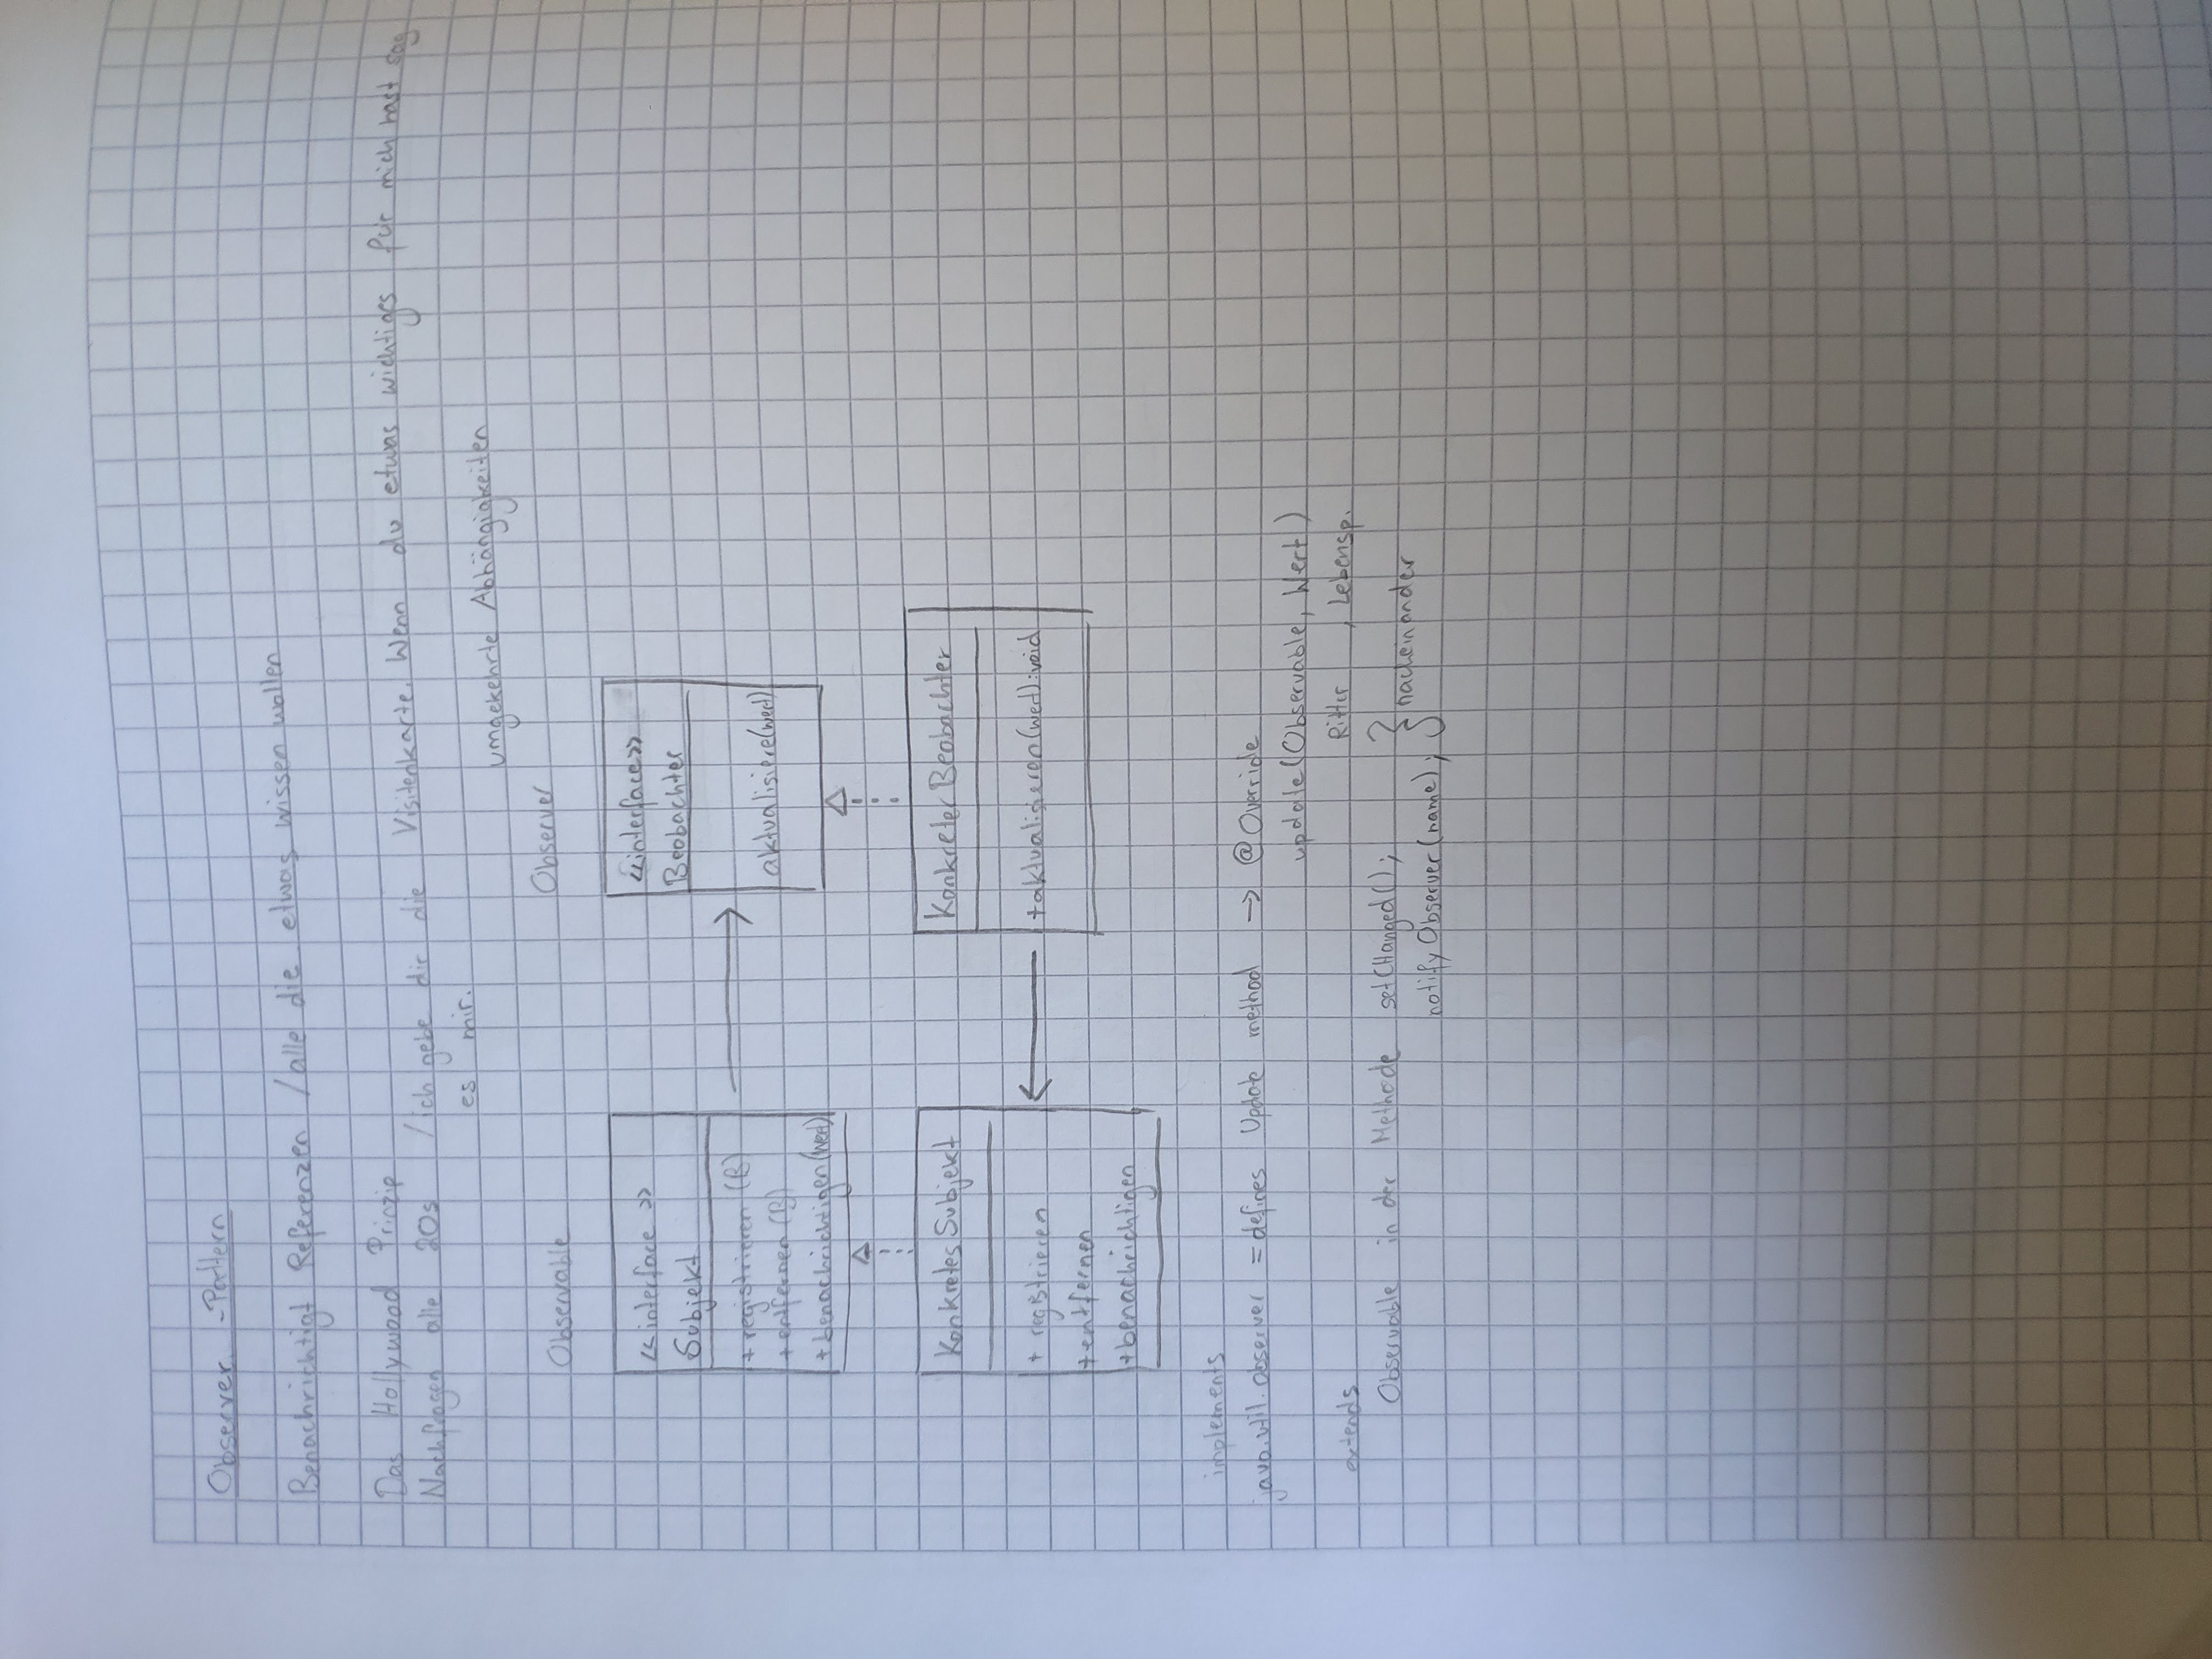 Observer -Pattern
Benachrichtigt Referenzen / alle die etwas wissen wollen
Das Hollywood Prinzip
Nachfragen alle 20s / ich gebe dir die Visitenkarte. Wenn du etwas wichtiges für mich hast sag
es mir.
umgekehrte Abhängigkeiten
Observable
Observer
<<interface>>
Subjekt
+ registrieren (B)
+ entfernen (B)
+ benachrichtigen(wert)
<<interface>>
Beobachter
aktualisiere(wert)
Konkretes Subjekt
+ registrieren
+ entfernen
+ benachrichtigen
Konkreter Beobachter
+ aktualisieren(wert):void
implements
java.util.observer = defines Update method → @Override
update(Observable, Wert)
Ritter , Lebensp.
extends
Observable in der Methode setCHanged();
notifyObserver(name); } nacheinander